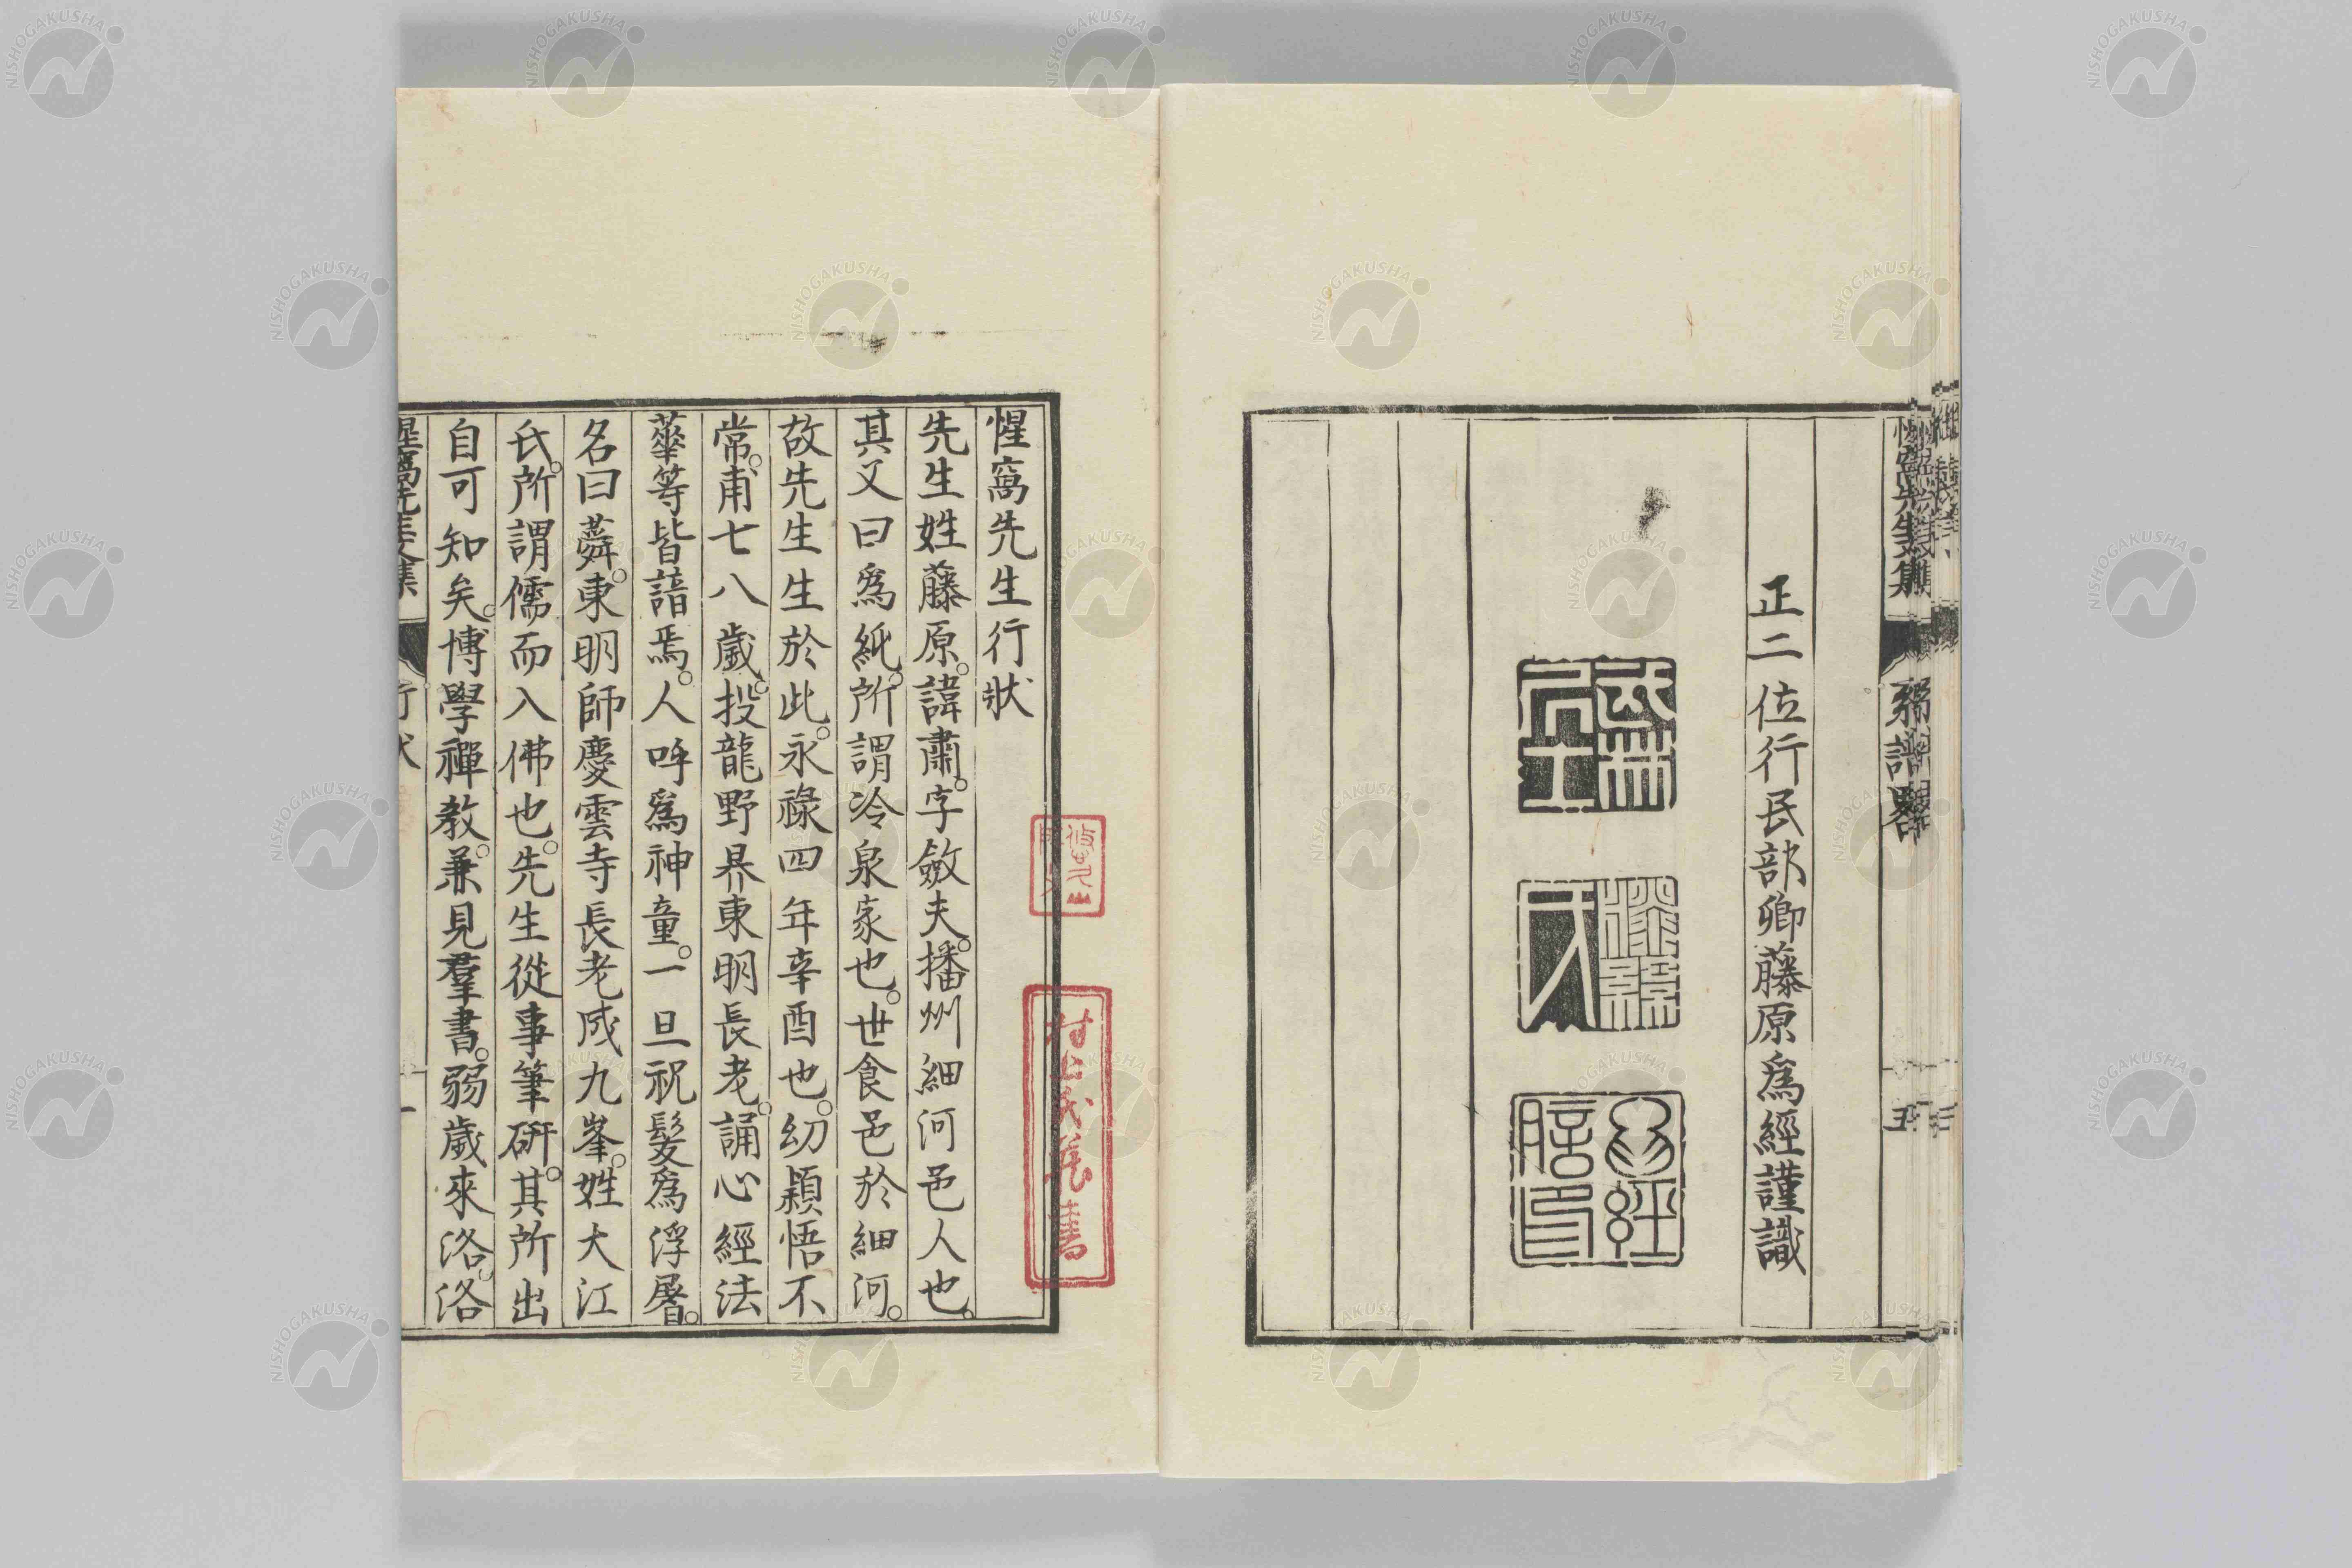 正二位行民部卿藤原爲經謹識
惺窩先生行狀
先生姓藤原。諱肅。字斂夫。播州細河邑人也。
其父曰爲純。所謂冷泉家也。世食邑於細河。
故先生生於此。永祿四年辛酉也。幼穎悟不
常。甫七八歲。投龍野昇東明長老。誦心經法
華等皆諳焉。人呼爲神童。一旦祝髮爲浮屠。
名曰蕣。東明師慶雲寺長老成九峯。姓大江
氏。所謂儒而入佛也。先生從事筆硏。其所出
自可知矣。博學禪教。兼見羣書。弱歲來洛。洛
NISHOGAKUSHA